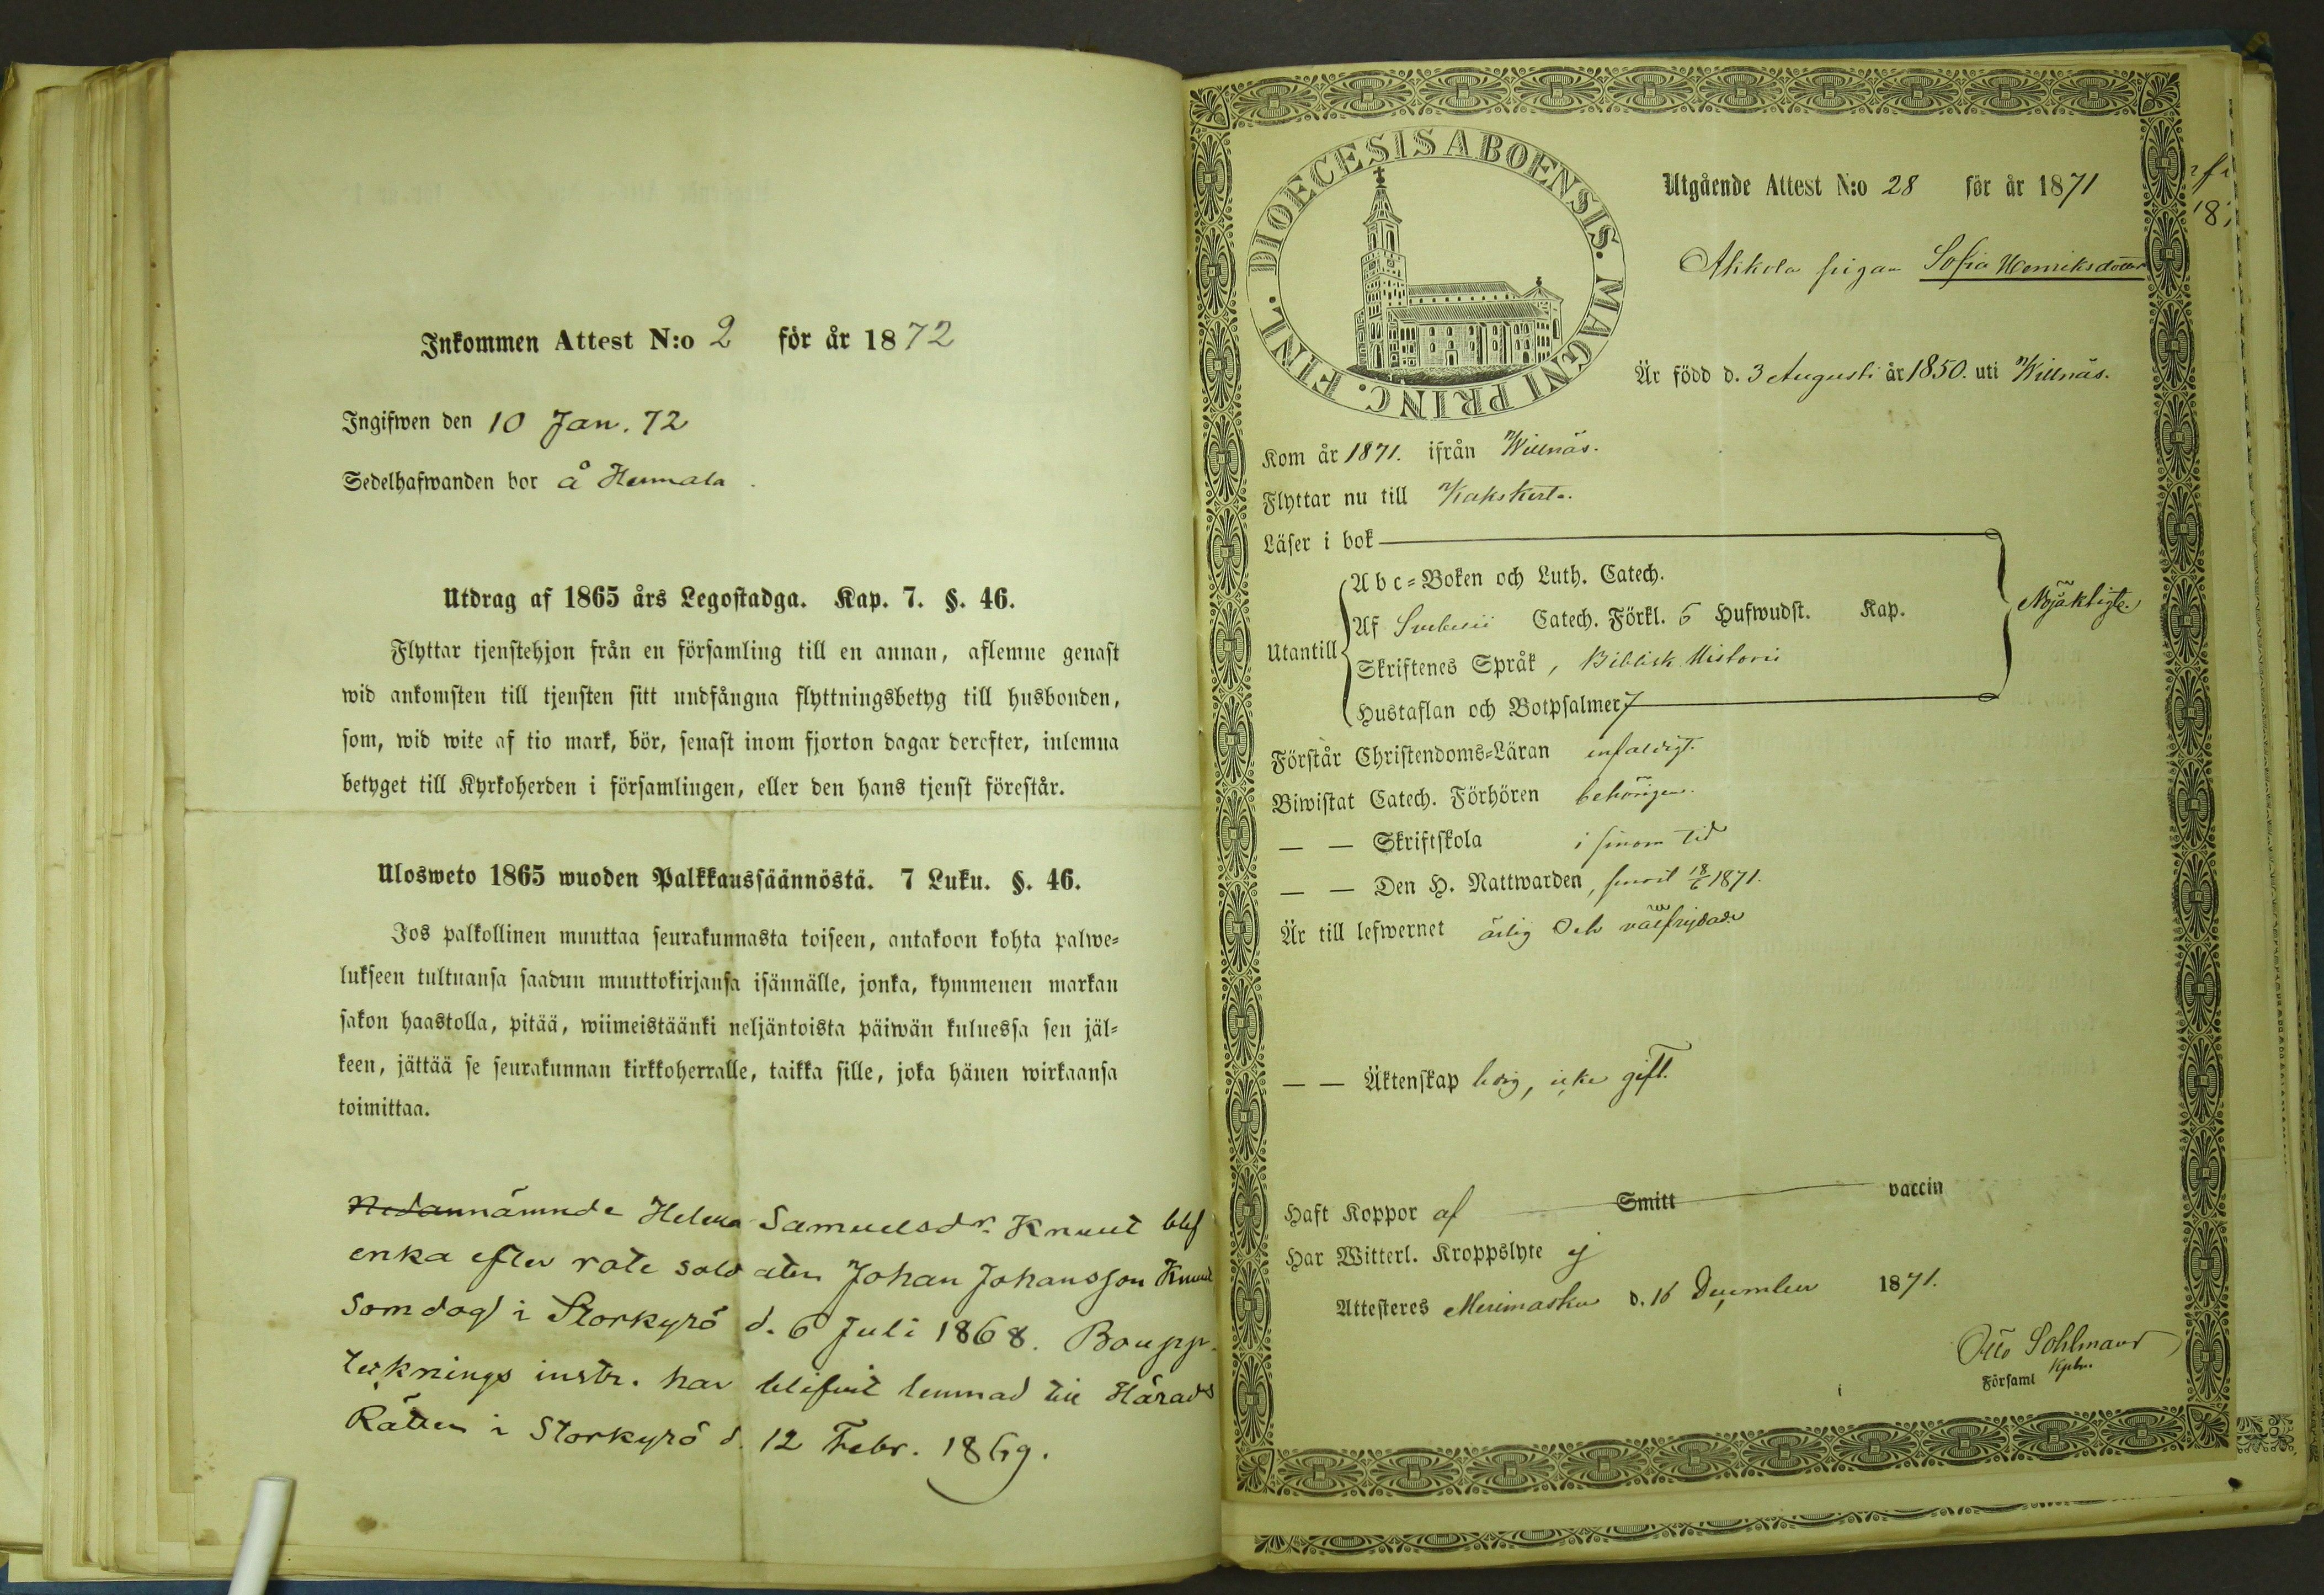 Inkommen Attest N:o 2 för år 1872
Ingifwen den 10 Jan. 72
Sedelhafwanden bor å Hermala.
Utdrag af 1865 års Legostadga. Kap. 7. §. 46.
Flyttar tjenstehjon från en församling till en annan, aflemne genast
wid ankomsten till tjensten sitt undfångna flyttningsbetyg till husbonden,
som, wid wite af tio mark, bör, senast inom fjorton dagar derefter, inlemna
betyget till Kyrkoherden i församlingen, eller den hans tjenst förestår.
Ulosweto 1865 wuoden Palkkaussäännöstä. 7 Luku. §. 46.
Jos palkollinen muuttaa seurakunnasta toiseen, antakoon kohta palwe-
lukseen tultuansa saadun muuttokirjansa isännälle, jonka, kymmenen markan
sakon haastolla, pitää, wiimeistäänki neljäntoista päiwän kuluessa sen jäl-
keen, jättää se seurakunnan kirkkoherralle, taikka sille, joka hänen wirkaansa
toimittaa.
Nedannämnde Helena Samuelsdr. Knuut blef
enka efter rote soldaten Johan Johansson Knuut
som dog i Storkyrö d. 6 Juli 1868. Boupp-
tecknings instr. har blifvit lemnad till Härads
Rätten i Storkyrö d. 12 Febr. 1869.
DIOECESIS ABOENSIS. MAGNI PRINC. FINL.
Utgående Attest N:o 28 för år 1871
pigan Sofia Henriksdotter
Är född d. 3 Augusti år 1850. uti Willnäs.
Kom år 1871. ifrån Willnäs.
Flyttar nu till Kakskerta.
Läser i bok
Abc-Boken och Luth. Catech.
Af Svebelii Catech. Förkl. 5 Hufwudst. Kap.
Utantill
Skriftenes Språk, Biblisk Historie
Hustaflan och Botpsalmer 7
Nöjaktigt.
Förstår Christendoms-Läran enfaldigt.
Biwistat Catech. Förhören behörigen.
— — Skriftskola i sinom tid
— — Den H. Nattwarden, senast 18/6 1871.
Är till lefwernet ärlig och välfrejdad
— — Äktenskap ledig, icke gift.
Haft Koppor af Smitt vaccin
Har Witterl. Kroppslyte ej
Attesteres Merimasku d. 16 December 1871.
Otto Sohlmand
Kpln.
i Församl